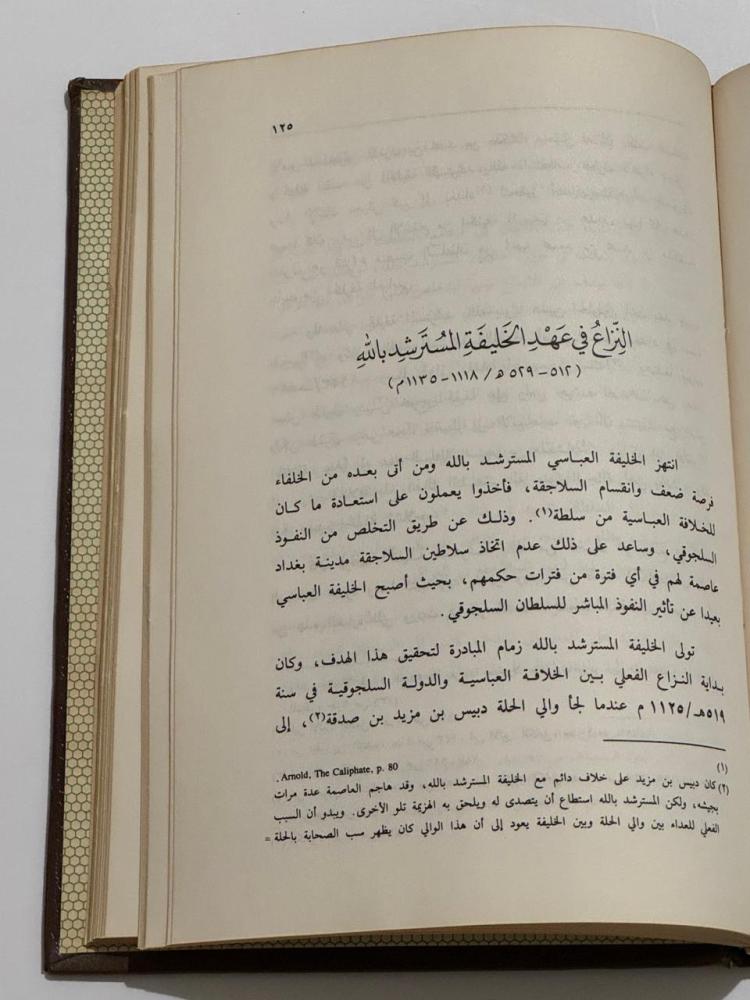 ١٢٥
النِّزَاعُ في عَهْدِ الخَليفَةِ المُسْتَرشِدِ بالله
(٥١٢ - ٥٢٩ هـ / ١١١٨ - ١١٣٥م)
انتهز الخليفة العباسي المسترشد بالله ومن أتى بعده من الخلفاء
فرصة ضعف وانقسام السلاجقة، فأخذوا يعملون على استعادة ما كان
للخلافة العباسية من سلطة(١). وذلك عن طريق التخلص من النفوذ
السلجوقي، وساعد على ذلك عدم اتخاذ سلاطين السلاجقة مدينة بغداد
عاصمة لهم في أي فترة من فترات حكمهم، بحيث أصبح الخليفة العباسي
بعيدا عن تأثير النفوذ المباشر للسلطان السلجوقي.
تولى الخليفة المسترشد بالله زمام المبادرة لتحقيق هذا الهدف، وكان
بداية النزاع الفعلي بين الخلافة العباسية والدولة السلجوقية في سنة
٥١٩هـ/١١٢٥ م عندما لجأ والي الحلة دبيس بن مزيد بن صدقة(٢)، إلى
(١) Arnold, The Caliphate, p. 80.
(٢) كان دبيس بن مزيد على خلاف دائم مع الخليفة المسترشد بالله، وقد هاجم العاصمة عدة مرات
بجيشه، ولكن المسترشد بالله استطاع أن يتصدى له ويلحق به الهزيمة تلو الأخرى. ويبدو أن السبب
الفعلي للعداء بين والي الحلة وبين الخليفة يعود إلى أن هذا الوالي كان يظهر سب الصحابة بالحلة =